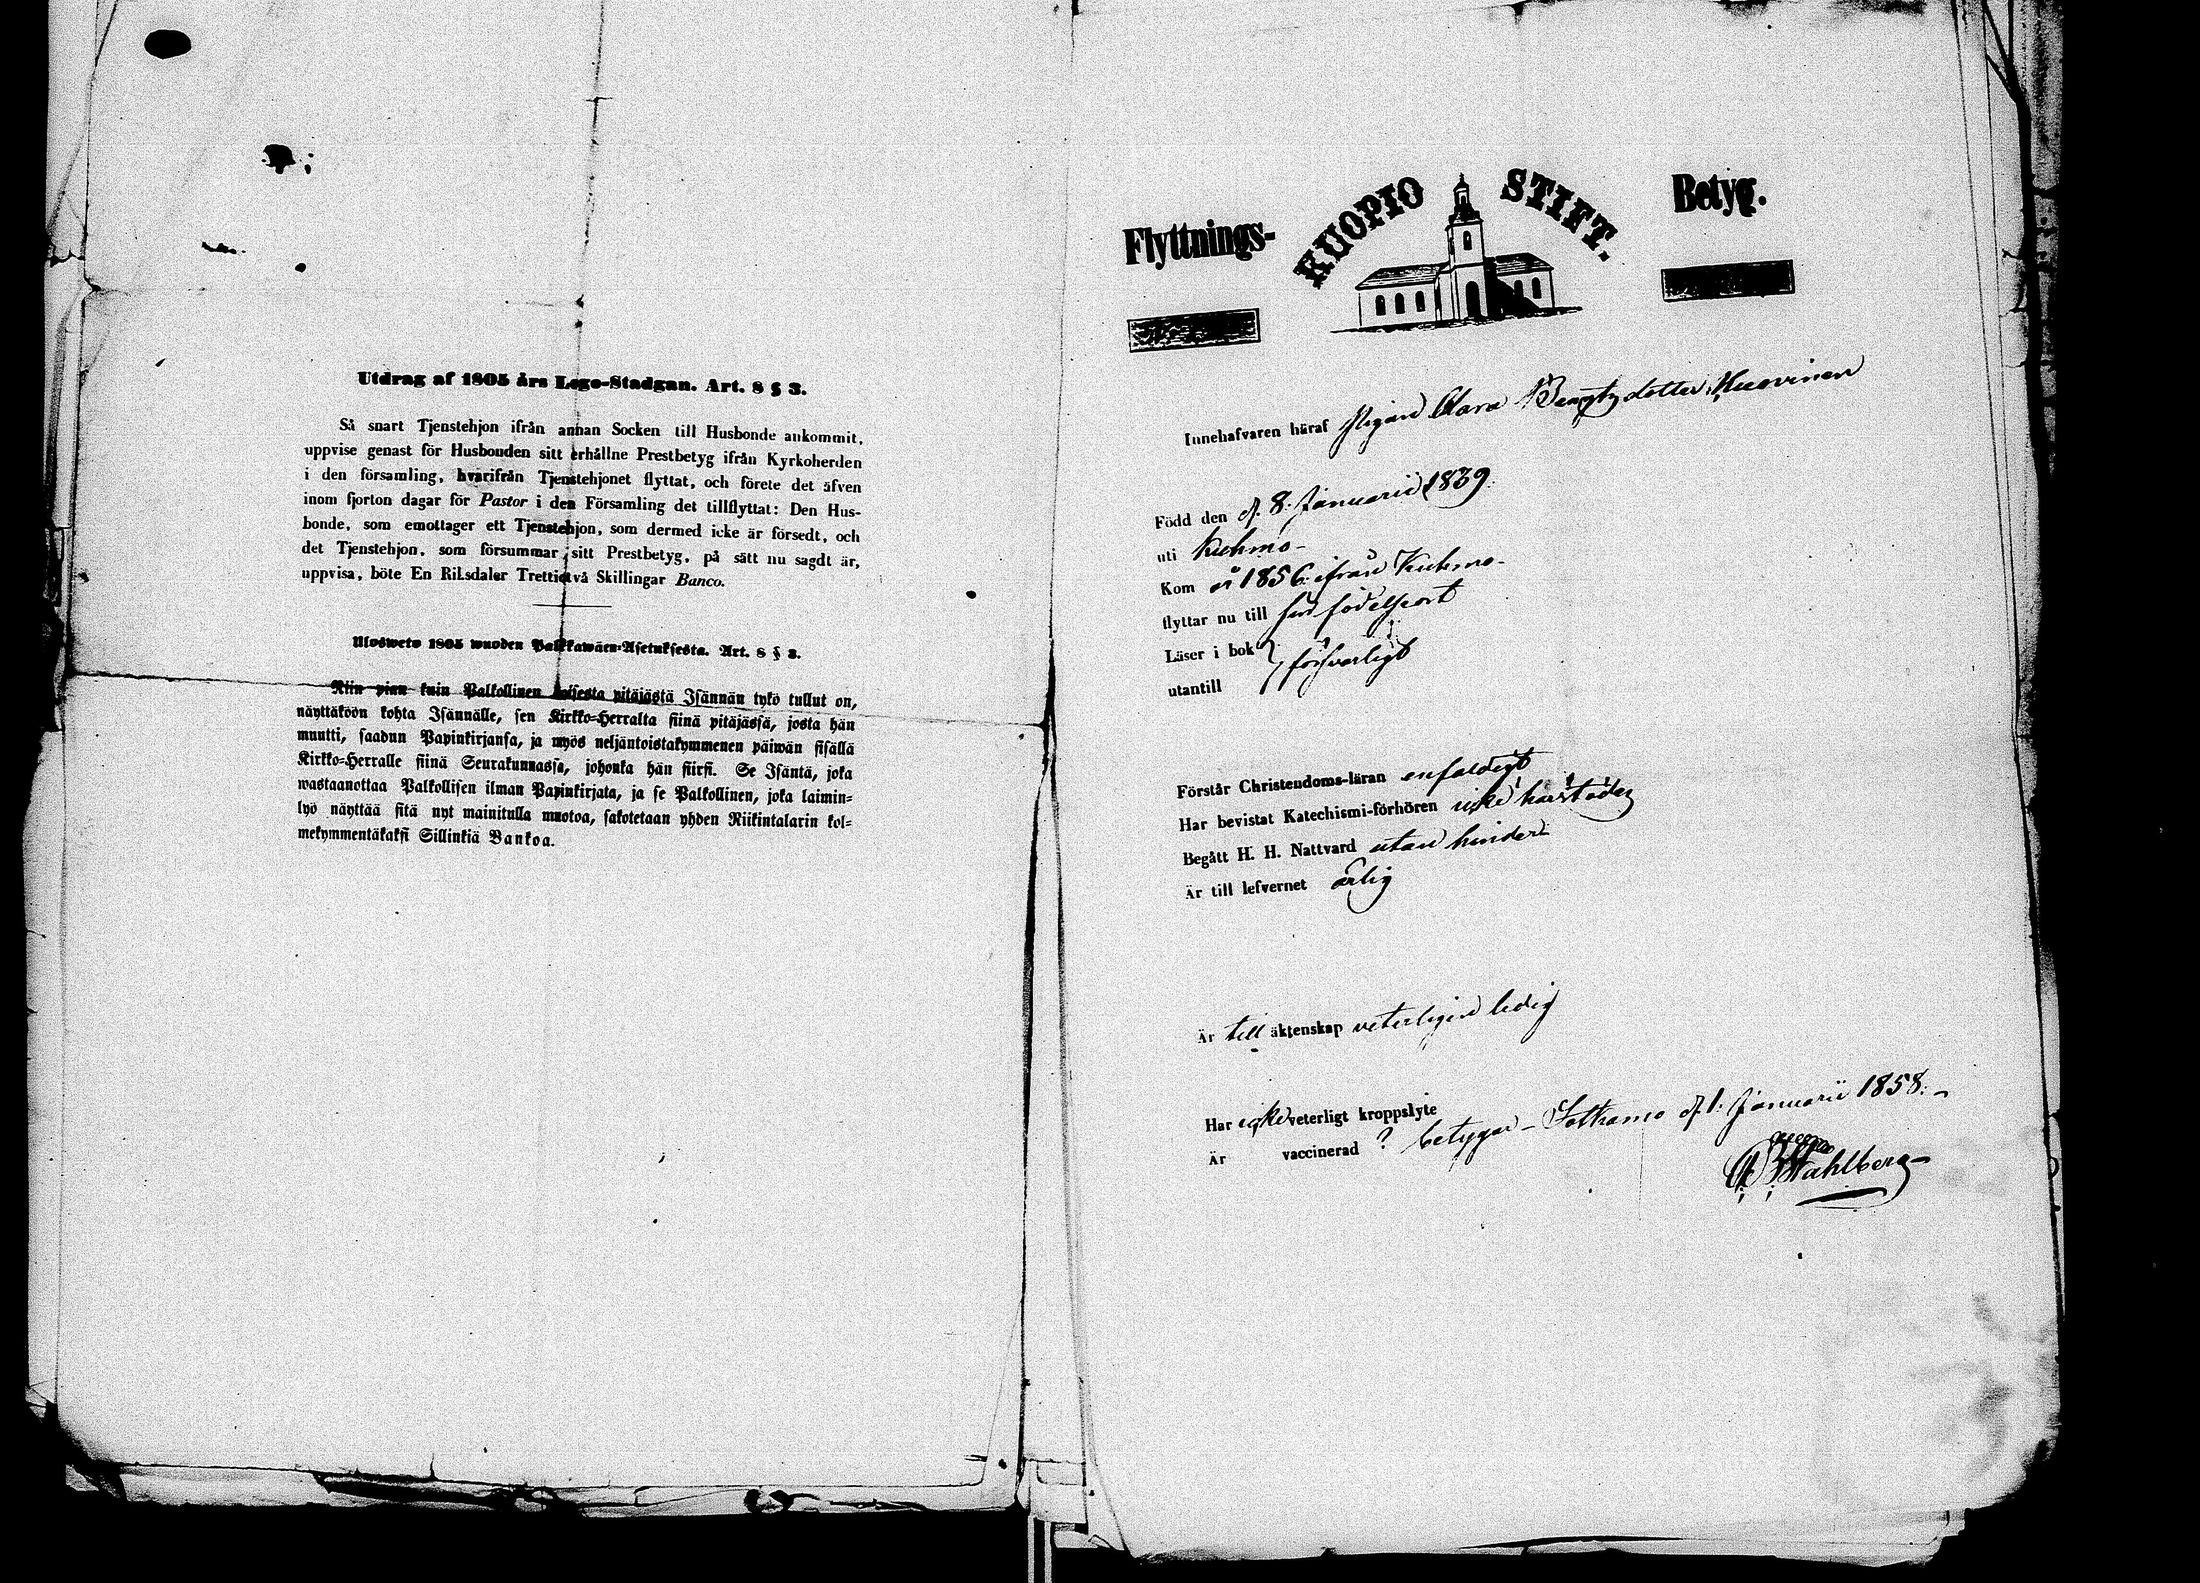 Utdrag af 1805 års Lego-Stadgan. Art. 8 § 3.
Så snart Tjenstehjon ifrån annan Socken till Husbonde ankommit,
uppvise genast för Husbonden sitt erhållne Prestbetyg ifrån Kyrkoherden
i den församling, hvarifrån Tjenstehjonet flyttat, och förete det äfven
inom fjorton dagar för Pastor i den Församling det tillflyttat: Den Hus-
bonde, som emottager ett Tjenstehjon, som dermed icke är försedt, och
det Tjenstehjon, som försummar sitt Prestbetyg, på sätt nu sagdt är,
uppvisa, böte En Riksdaler Trettiotvå Skillingar Banco.
Ulosweto 1805 wuoden Palkkawäen-Asetuksesta. Art. 8 § 3.
Niin pian kuin Palkollinen toisesta pitäjästä Isännän tykö tullut on,
näyttäköön kohta Isännälle, sen Kirkko-Herralta siinä pitäjässä, josta hän
muutti, saadun Papinkirjansa, ja myös neljäntoistakymmenen päiwän sisällä
Kirkko-Herralle siinä Seurakunnassa, johonka hän siirsi. Se Isäntä, joka
wastaanottaa Palkollisen ilman Papinkirjata, ja se Palkollinen, joka laimin-
lyö näyttää sitä nyt mainitulla muotoa, sakotetaan yhden Riikintalarin kol-
mekymmentäkaksi Sillinkiä Bankoa.
Flyttnings- KUOPIO STIFT. Betyg.
Innehafvaren häraf Pigan Clara Bengtsdotter Huovinen
Född den d. 8. Januarii 1839.
uti Kuhmo-
Kom år 1856 ifrån Kuhmo-
flyttar nu till sin födelseort
Läser i bok
utantill försvarligt
Förstår Christendoms-läran enfaldigt
Har bevistat Katechismi-förhören icke härstädes
Begått H. H. Nattvard utan hinder
Är till lefvernet ärlig
Är till äktenskap veterligen ledig
Har icke veterligt kroppslyte
Är vaccinerad ? betygar - Sotkamo d. 1. Januarii 1858. -
Stahlberg